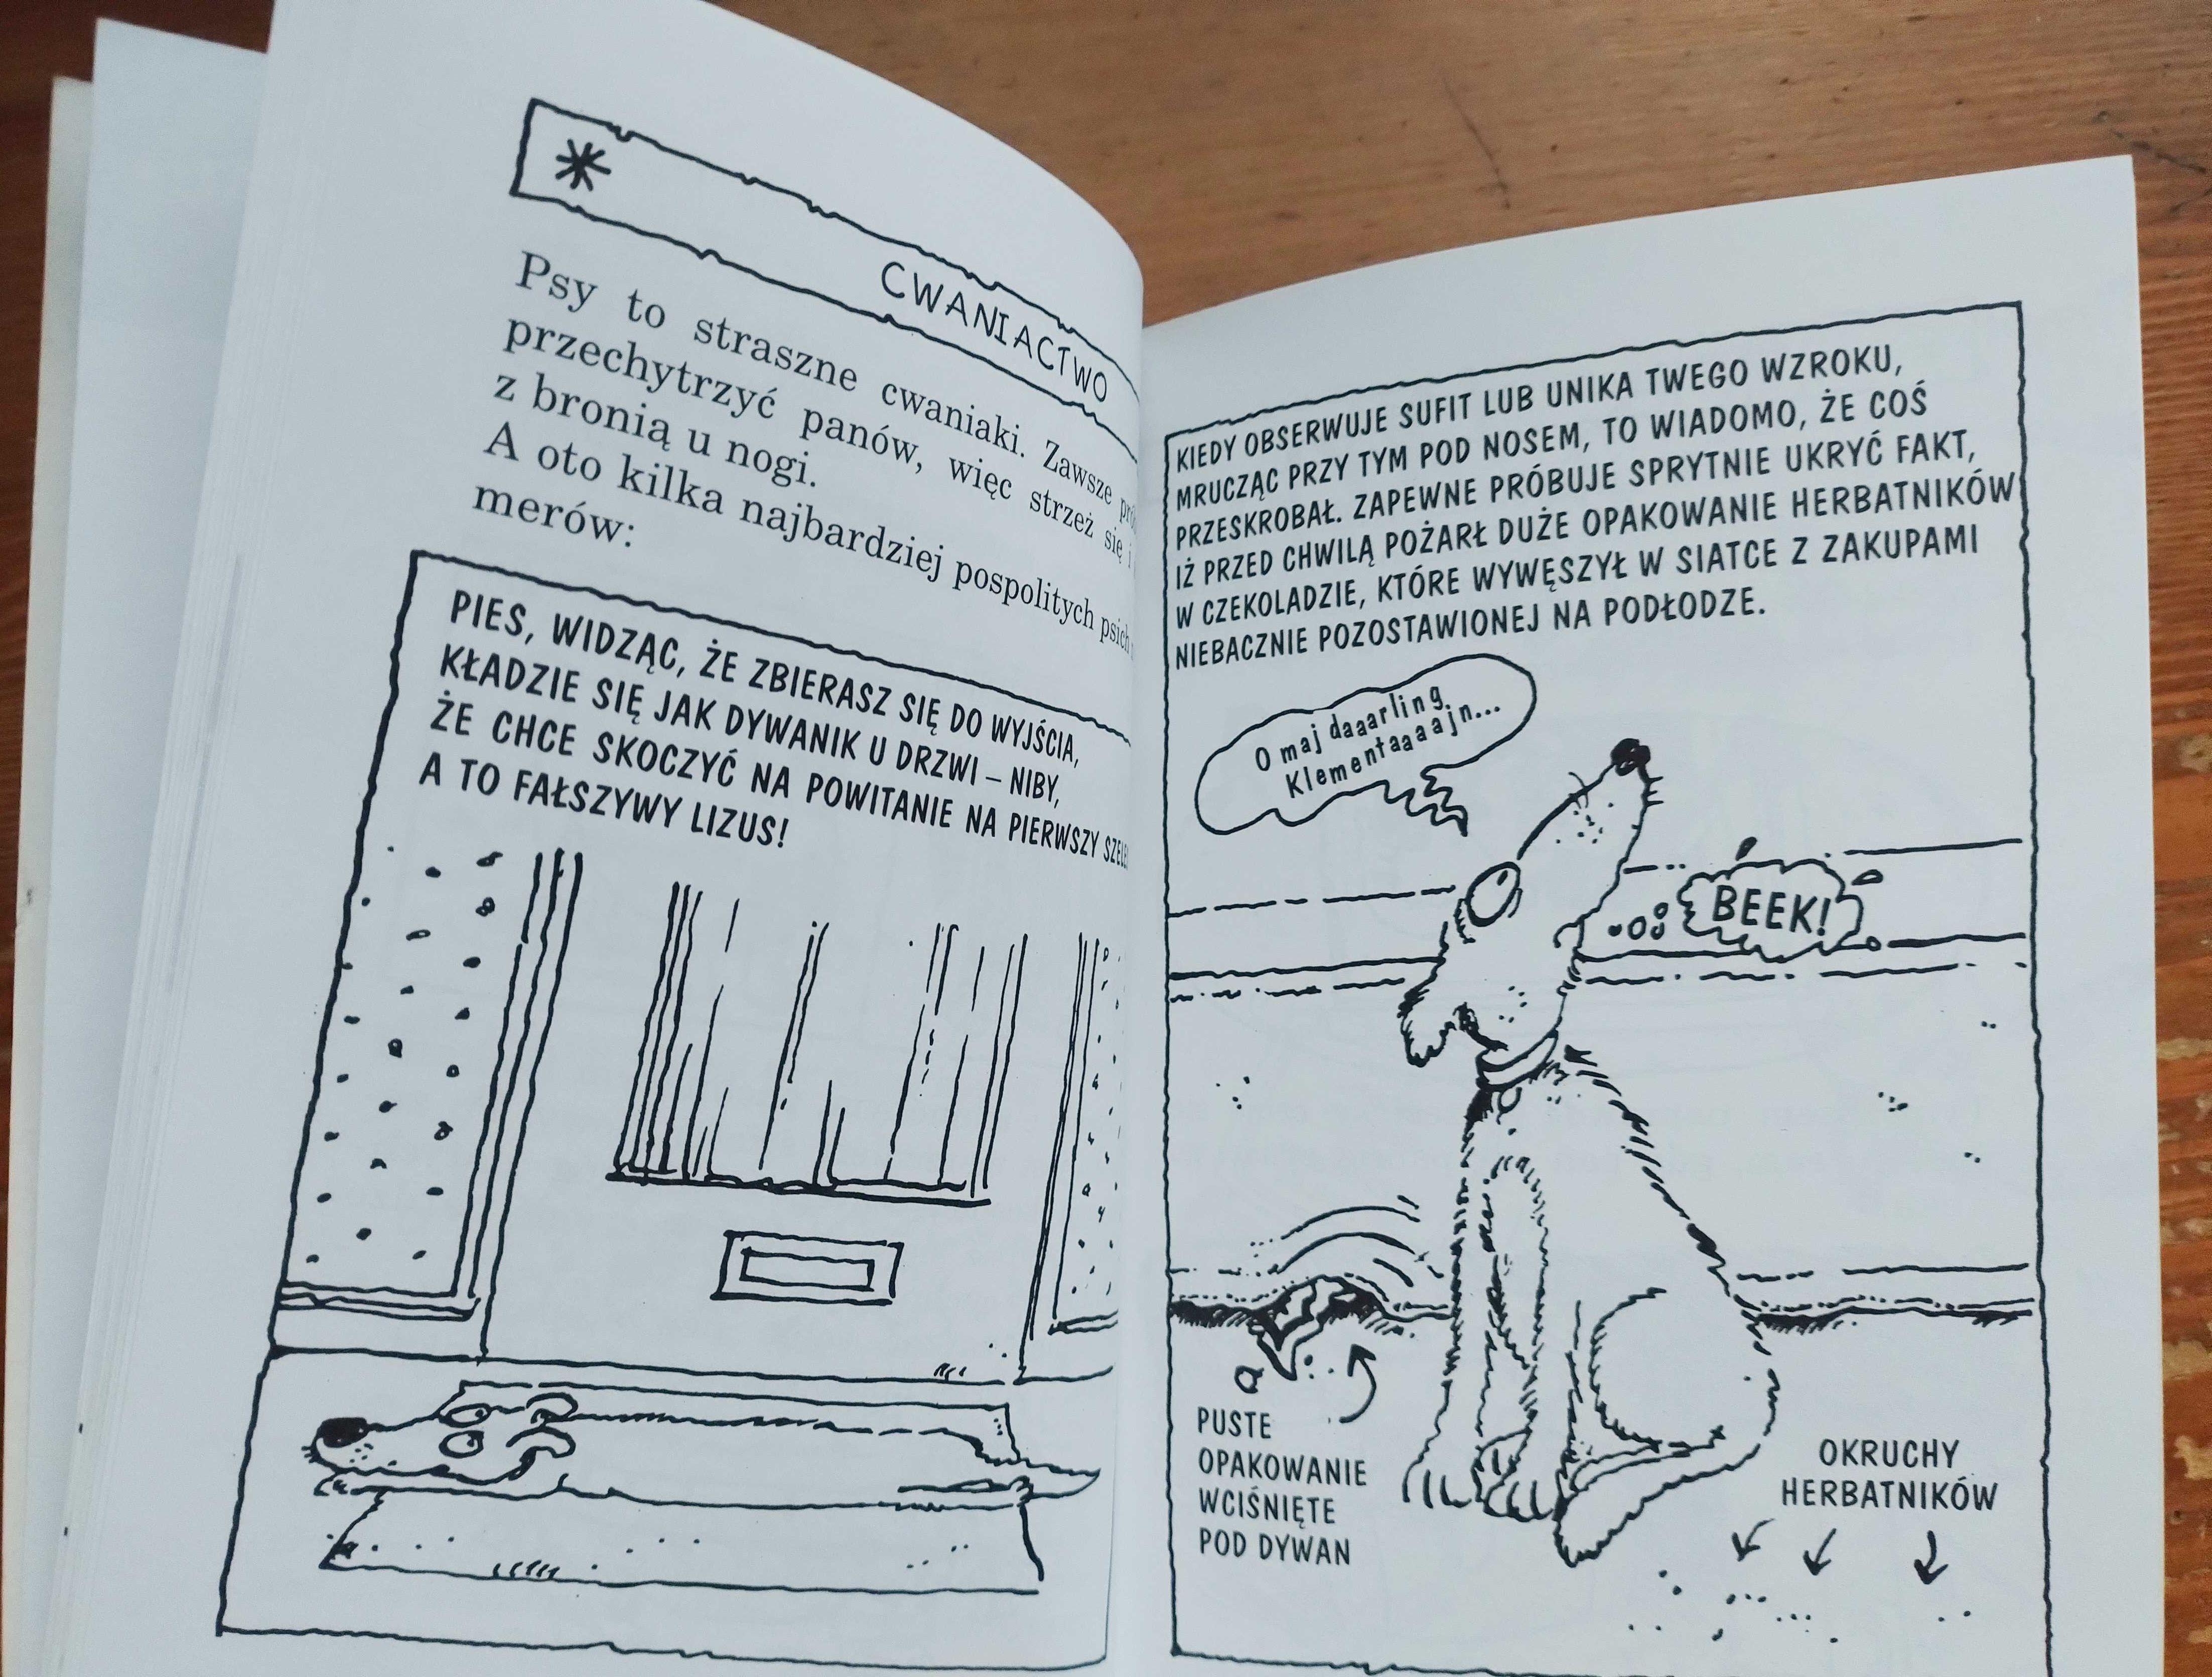 *
CWANIACTWO
Psy to straszne cwaniaki. Zawsze
przechytrzyć panów, więc strzeż się i
z bronią u nogi.
A oto kilka najbardziej pospolitych psich
merów:
PIES, WIDZĄC, ŻE ZBIERASZ SIĘ DO WYJŚCIA,
KŁADZIE SIĘ JAK DYWANIK U DRZWI – NIBY,
ŻE CHCE SKOCZYĆ NA POWITANIE NA PIERWSZY
A TO FAŁSZYWY LIZUS!
KIEDY OBSERWUJE SUFIT LUB UNIKA TWEGO WZROKU,
MRUCZĄC PRZY TYM POD NOSEM, TO WIADOMO, ŻE COŚ
PRZESKROBAŁ. ZAPEWNE PRÓBUJE SPRYTNIE UKRYĆ FAKT,
IŻ PRZED CHWILĄ POŻARŁ DUŻE OPAKOWANIE HERBATNIKÓW
W CZEKOLADZIE, KTÓRE WYWĘSZYŁ W SIATCE Z ZAKUPAMI
NIEBACZNIE POZOSTAWIONEJ NA PODŁODZE.
O maj daaarling,
Klementaaaajn...
BEEK!
PUSTE
OPAKOWANIE
WCIŚNIĘTE
POD DYWAN
OKRUCHY
HERBATNIKÓW